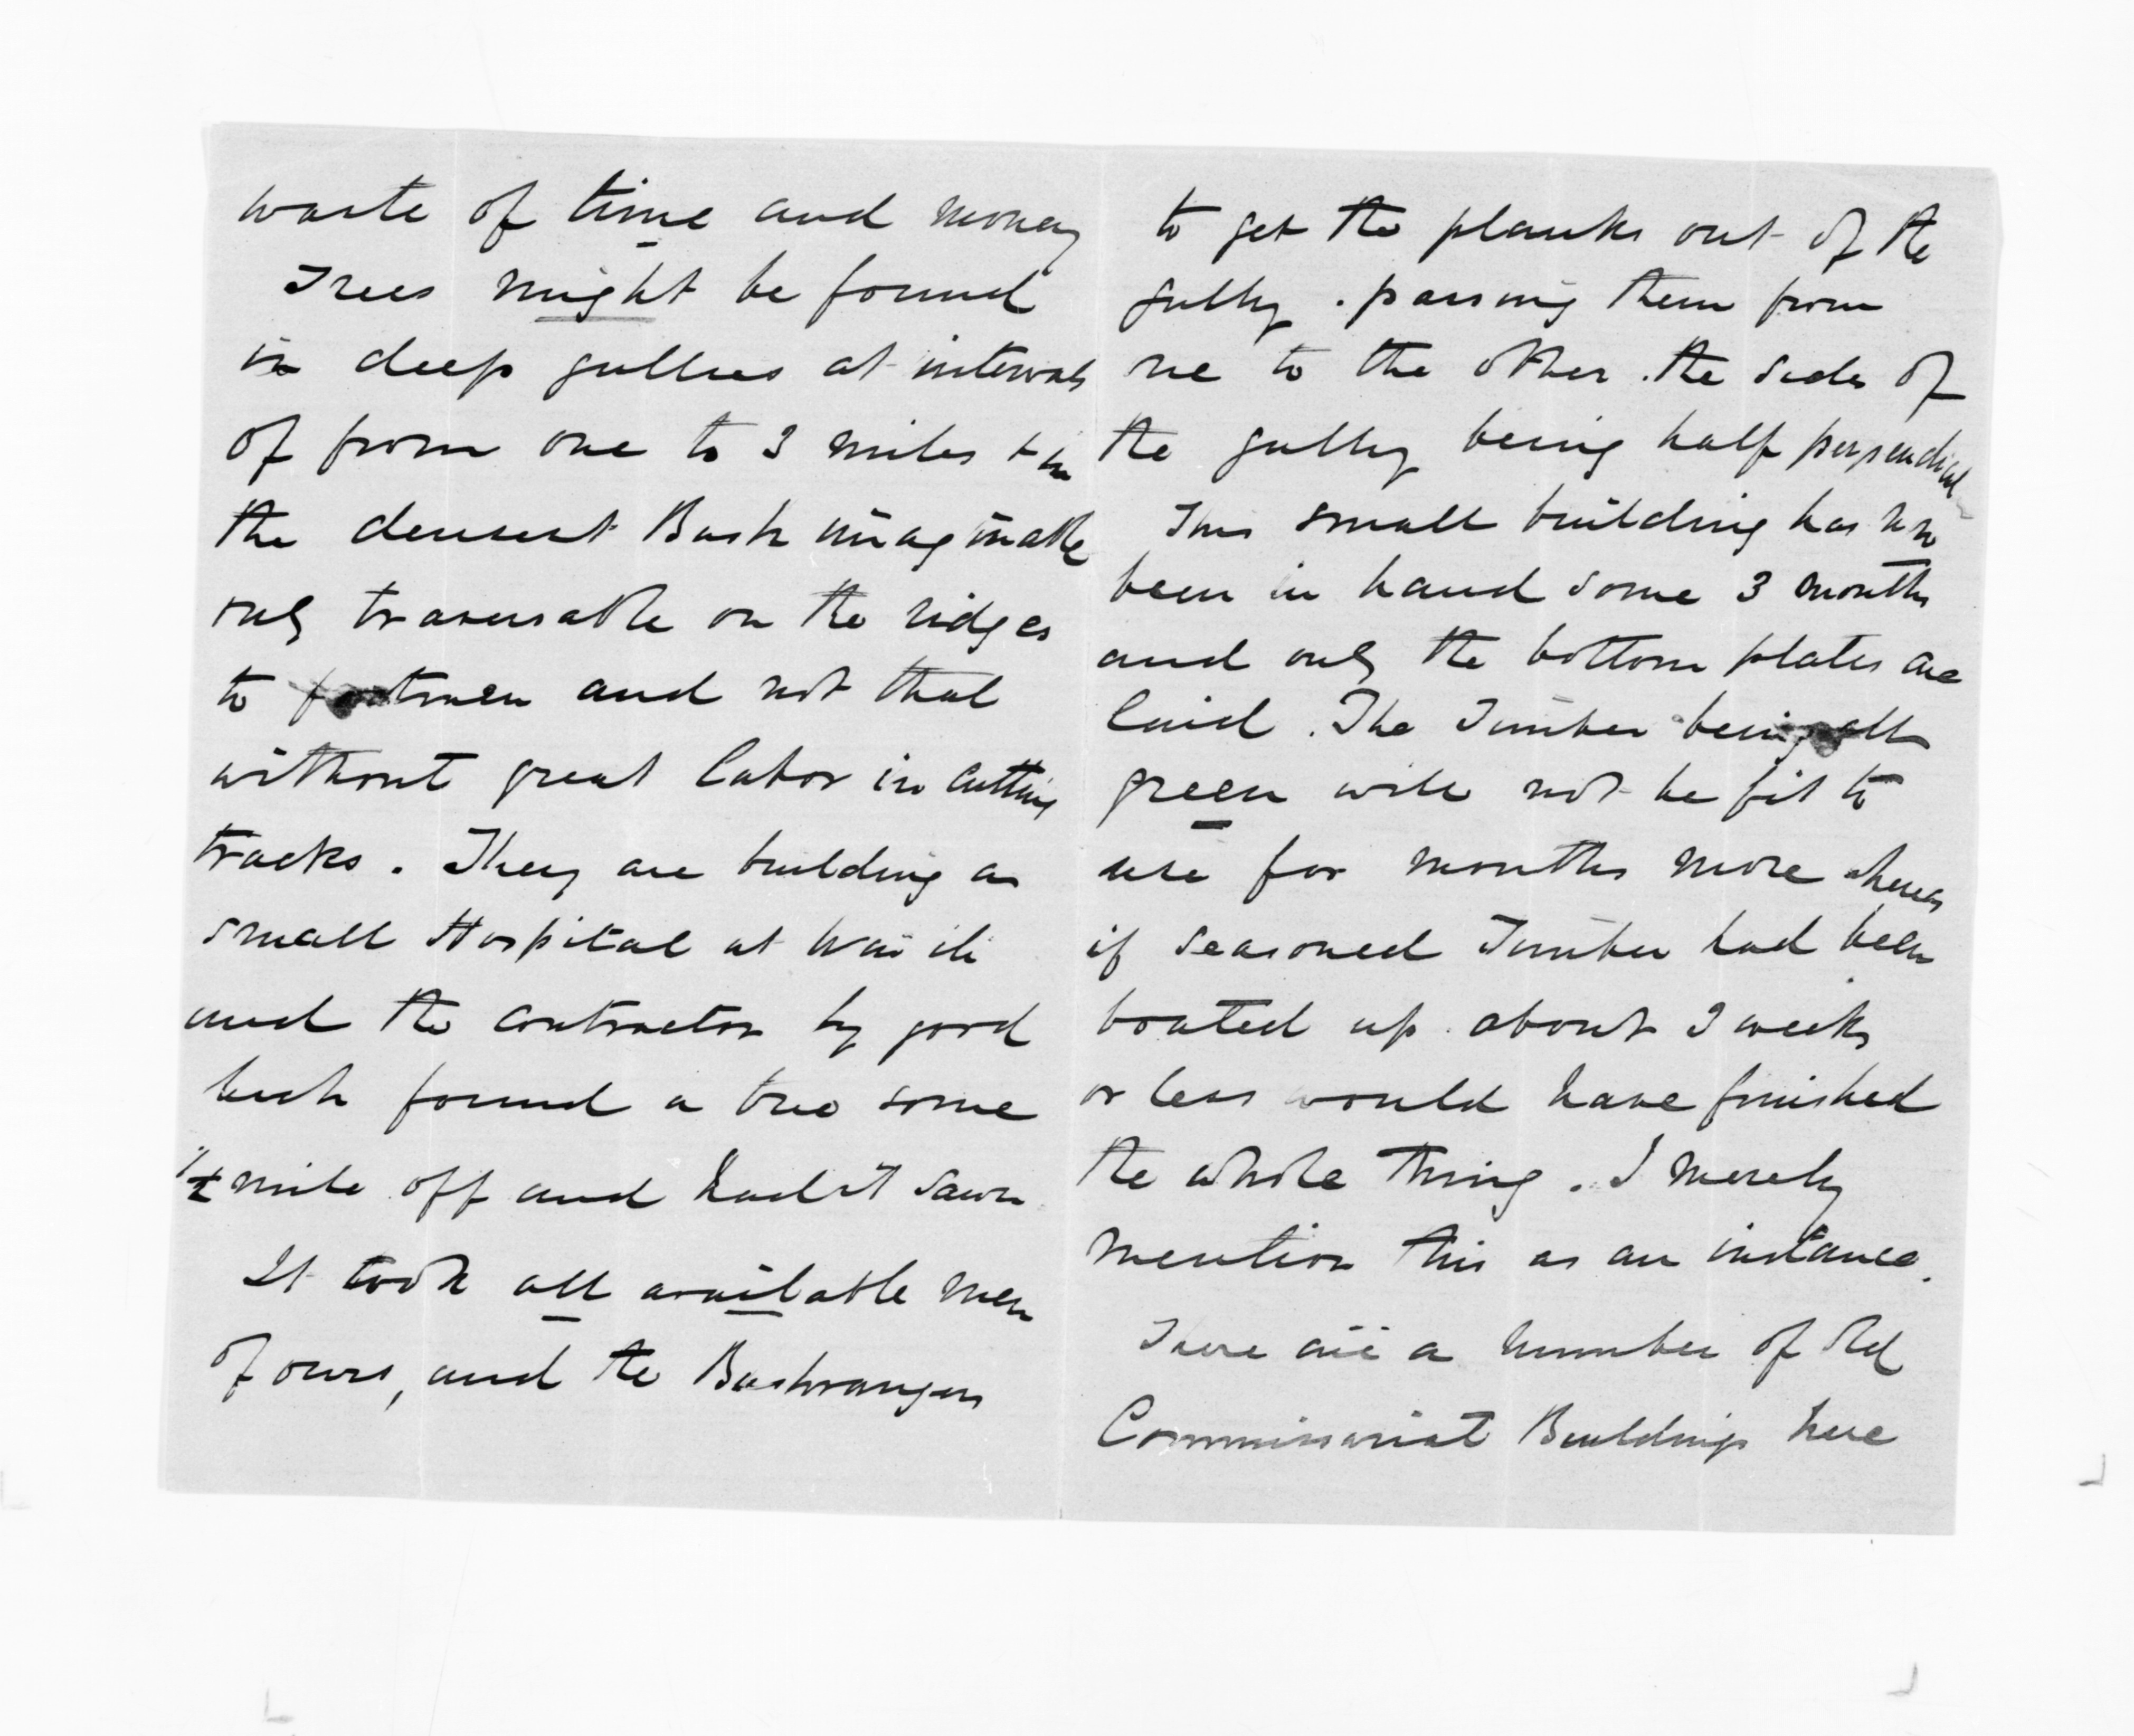 waste of time and money
Trees might be found
in deep gullies at intervals
of from one to 3 miles & in
the densest Bush imaginable
only traversable on the ridges
to footmen and not that
without great labor in cutting
tracks. They are building a
small Hospital at Waiihi
and the contractor by good
luck found a tree some
1/2 mile off and had it sawn
It took all available men
of ours, and the Bushrangers
to get the planks out of the
gully. passing them from
one to the other. the sides of
the gully being half perpendicul
This small building has now
been in hand some 3 months
and only the bottom plates are
laid. The Timber being all
green will not be fit to
use for months more whereas
if seasoned Timber had been
boated up about 3 weeks
or less would have finished
the whole thing. I merely
mention this as an instance.
There are a number of old
Commissariat Buildings here